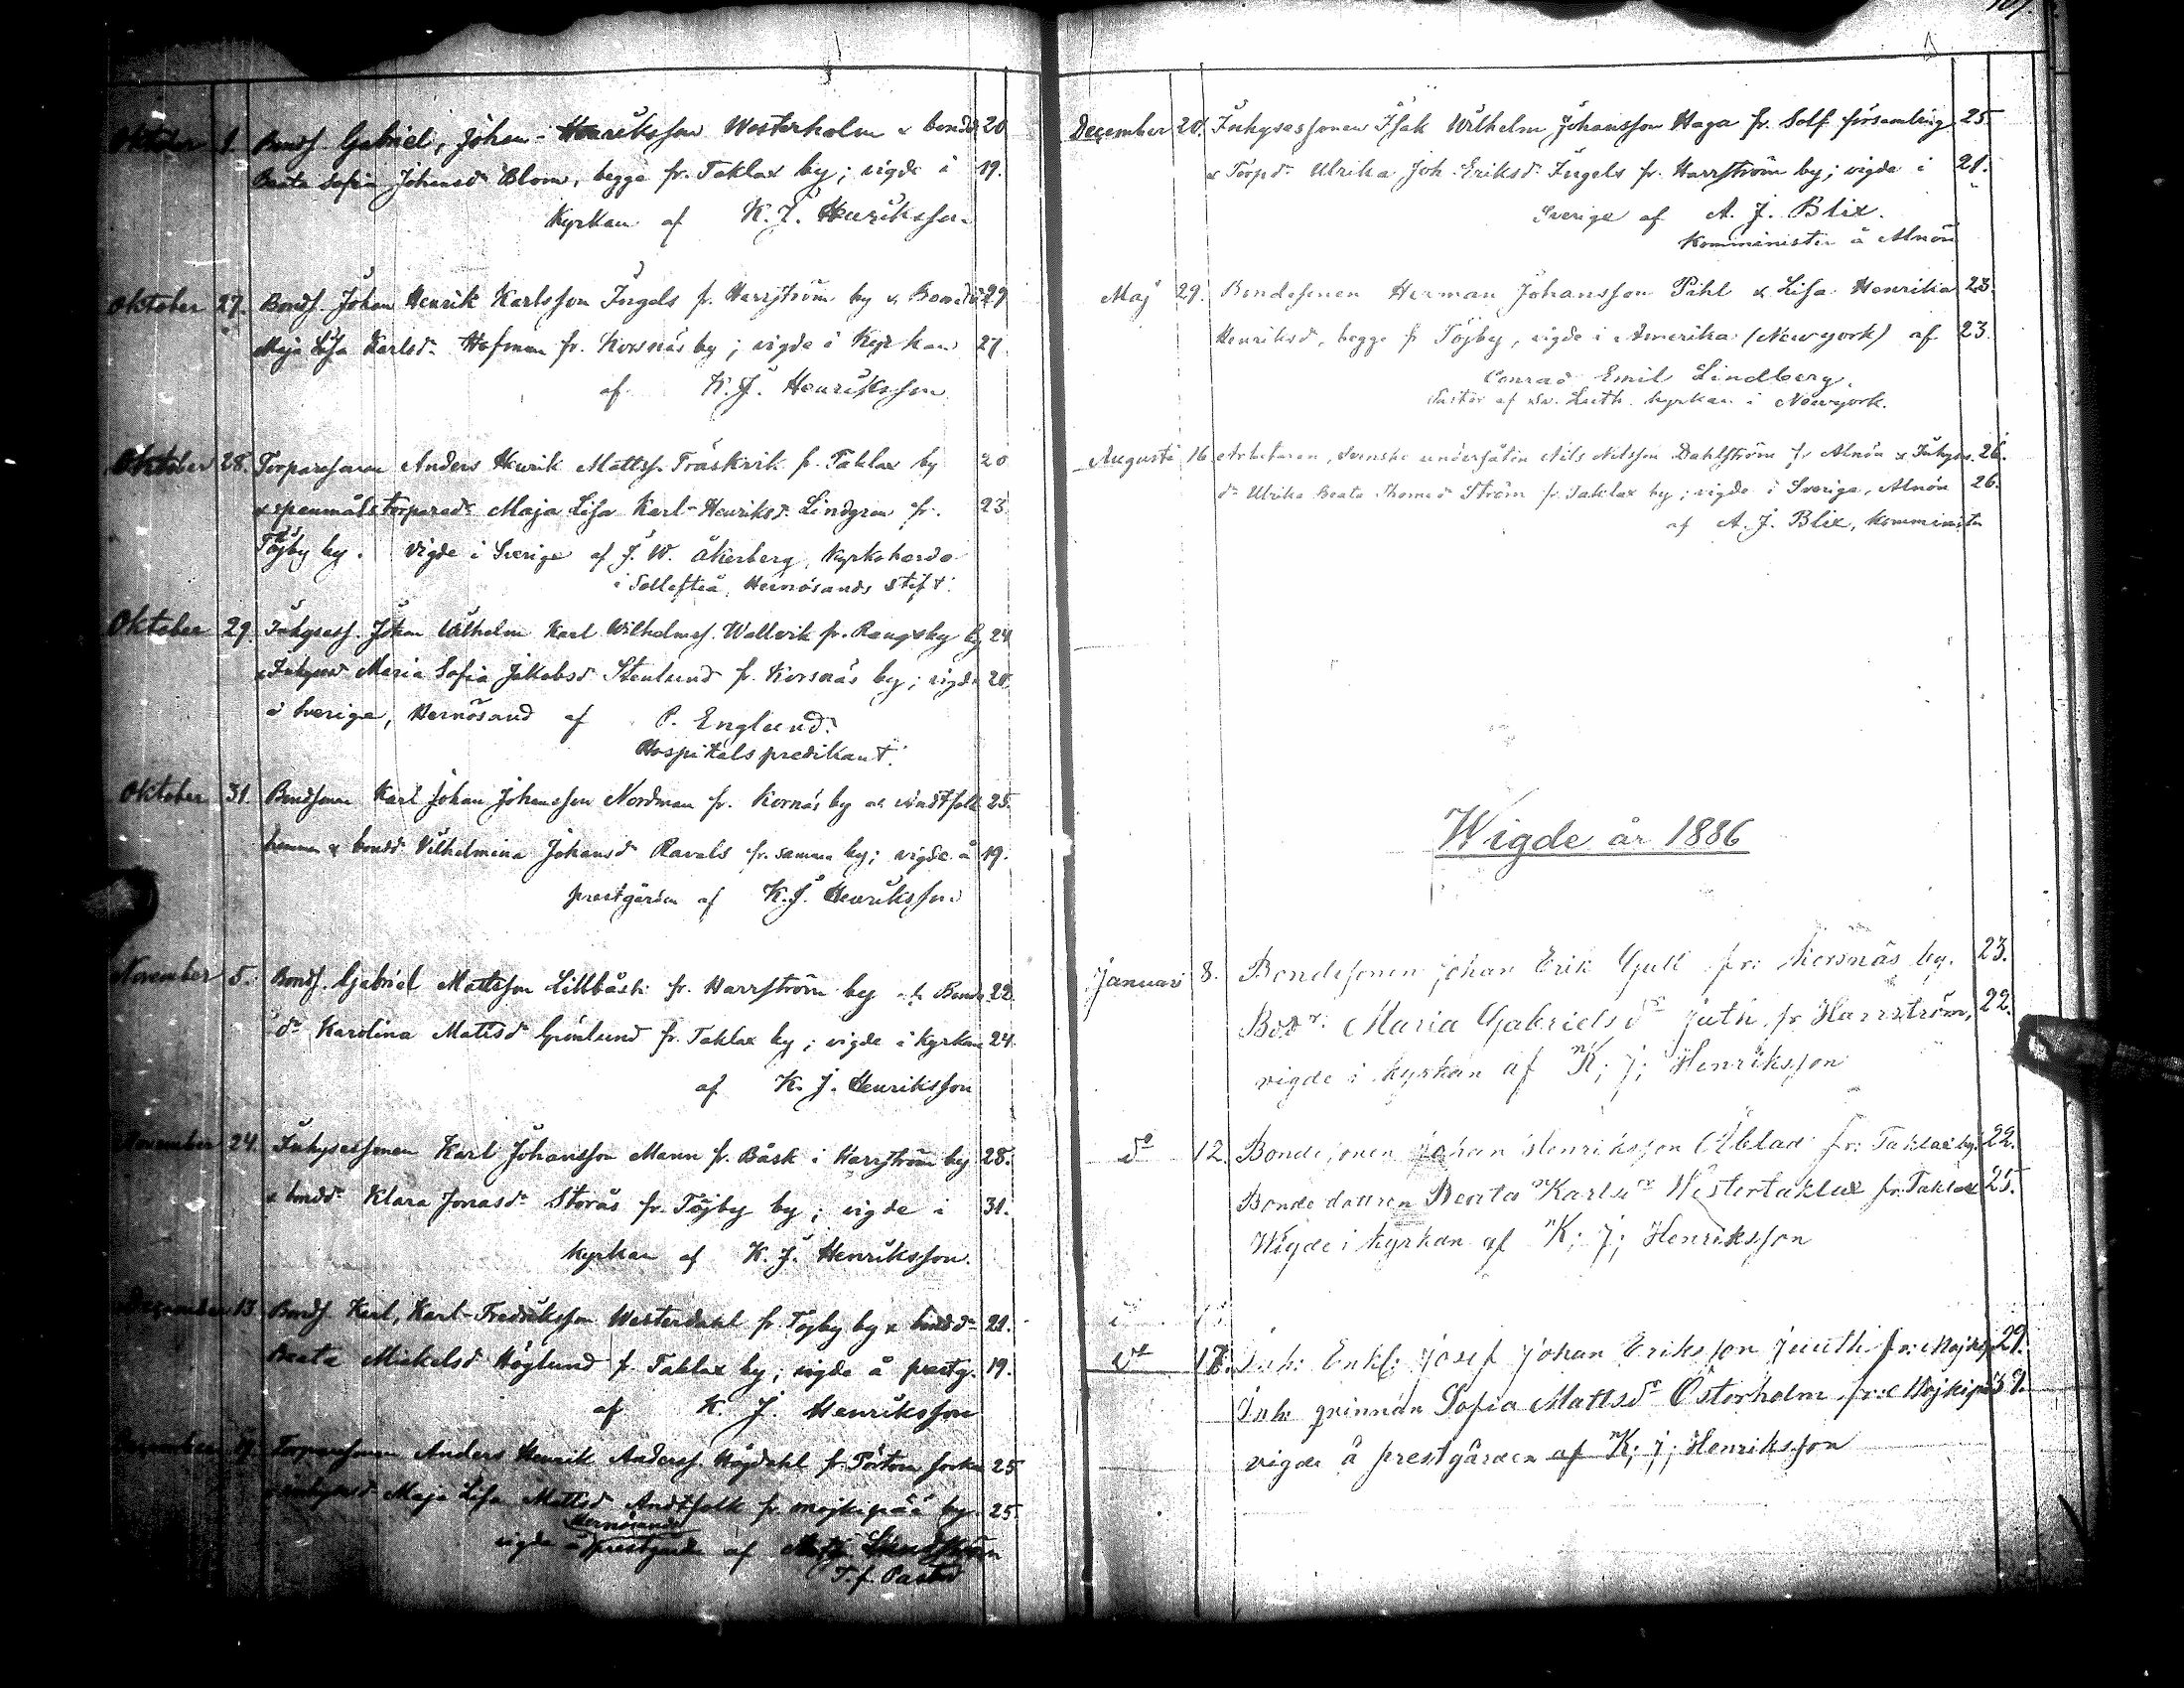 107.
Oktober 1. Bondf. Gabriel, Johan-Henriksson Westerholm & bondd 20
Beata Sofia Johansdr Blom, begge fr. Taklax by; vigde i 19.
Kyrkan af K. J. Henriksson
Oktober 27. Bondf. Johan Henrik Karlsson Ingels fr. Harrström by & Bondd 29
Maja Lisa Karlsdr Hofman fr. Korsnäs by; vigde i Kyrkan 27.
af K. J. Henriksson
Oktober 28. Torparesonen Anders Henrik Mattss. Träskvik fr. Taklax by 20
& spanmålstorpared. Maja Lisa Karl-Henriksd. Lindgren fr. 23
Töjby by. Vigde i Sverige af J. W. Åkerberg, Kyrkoherde
i Sollefteå, Hernösands Stift.
Oktober 29. Inhysess. Johan Wilhelm Karl Wilhelmss. Wallvik fr. Rangsby by 24
& Inhysesd Maria Sofia Jakobsd Stenlund fr. Korsnäs by; vigde 20.
i Sverige, Hernösand af P. Englund.
Hospitals predikant.
Oktober 31. Bondsonen Karl Johan Johansson Nordman fr. Kornäs by 25.
& bondd Vilhelmina Johansd Ravals fr. samma by; vigde å 19.
prestgården af K. J. Henriksson
November 5. Bondf. Gabriel Mattsson Lillbåsk fr. Harrström by och Bonde 22.
dr Karolina Matsdr Grönlund fr. Taklax by; vigde i Kyrkan 24.
af K. J. Henriksson
November 24. Inhysessonen Karl Johansson Mann fr. Båsk i Harrström by 28.
& bondd Klara Jonasdr Storås fr. Töjby by; vigde i 31.
kyrkan af K. J. Henriksson.
December 13. Bondf. Karl, Karl-Fredriksson Westerdahl fr. Töjby by & bondd 21.
Beata Mickelsd Höglund fr. Taklax by; vigde å prestg. 19.
af K. J. Henriksson
December Torparesonen Anders Henrik Anderss. Högdahl fr. Pörtom socken 25
Maja Lisa Mattsd Andtfolk fr. Mojkipää by 25
Hernösand
vigde å prestgård af
T. f. Pastor
December 20. Inhysessonen Isak Wilhelm Johansson Haga fr. Solf församling 25
& Torpd Ulrika Joh. Eriksd. Ingels fr. Harrström by; vigde i 21.
Sverige af A. J. Blix.
Komminister å Alnön
Maj 29. Bondesonen Herman Johansson Pihl & Lisa Henrika 23.
Henriksd, begge fr Töjby, vigde i Amerika (Newyork) af 23.
Conrad Emil Lindberg.
Pastor af Sv. Luth. kyrkan i Newyork.
Augusti 16 Arbetaren, Svenske undersåten Nils Nilsson Dahlström fr Alnön & Inhyses 26.
dr Ulrika Beata Thomasd Ström fr. Taklax by; vigde i Sverige, Alnön 26.
af A. J. Blix, Komminister
Wigde år 1886
Januari 8. Bondesonen Johan Erik Gull fr: Korsnäs by. 23.
Bdr: Maria Gabrielsdr Juth fr Harrström, 22.
vigde i kyrkan af K; J; Henriksson
do 12. Bondesonen Johan Henriksson Åblad fr: Taklax by. 22.
Bonde dottren Beata Karlsdr Westertaklax fr. Taklax 25.
Wigde i kyrkan af K; J; Henriksson
do 17. Inh: Enkl: Josef Johan Eriksson Juuth fr: 29.
Inh: qvinnan Sofia Mattsdr Österholm fr: 39.
vigde å prestgården af K; J; Henriksson